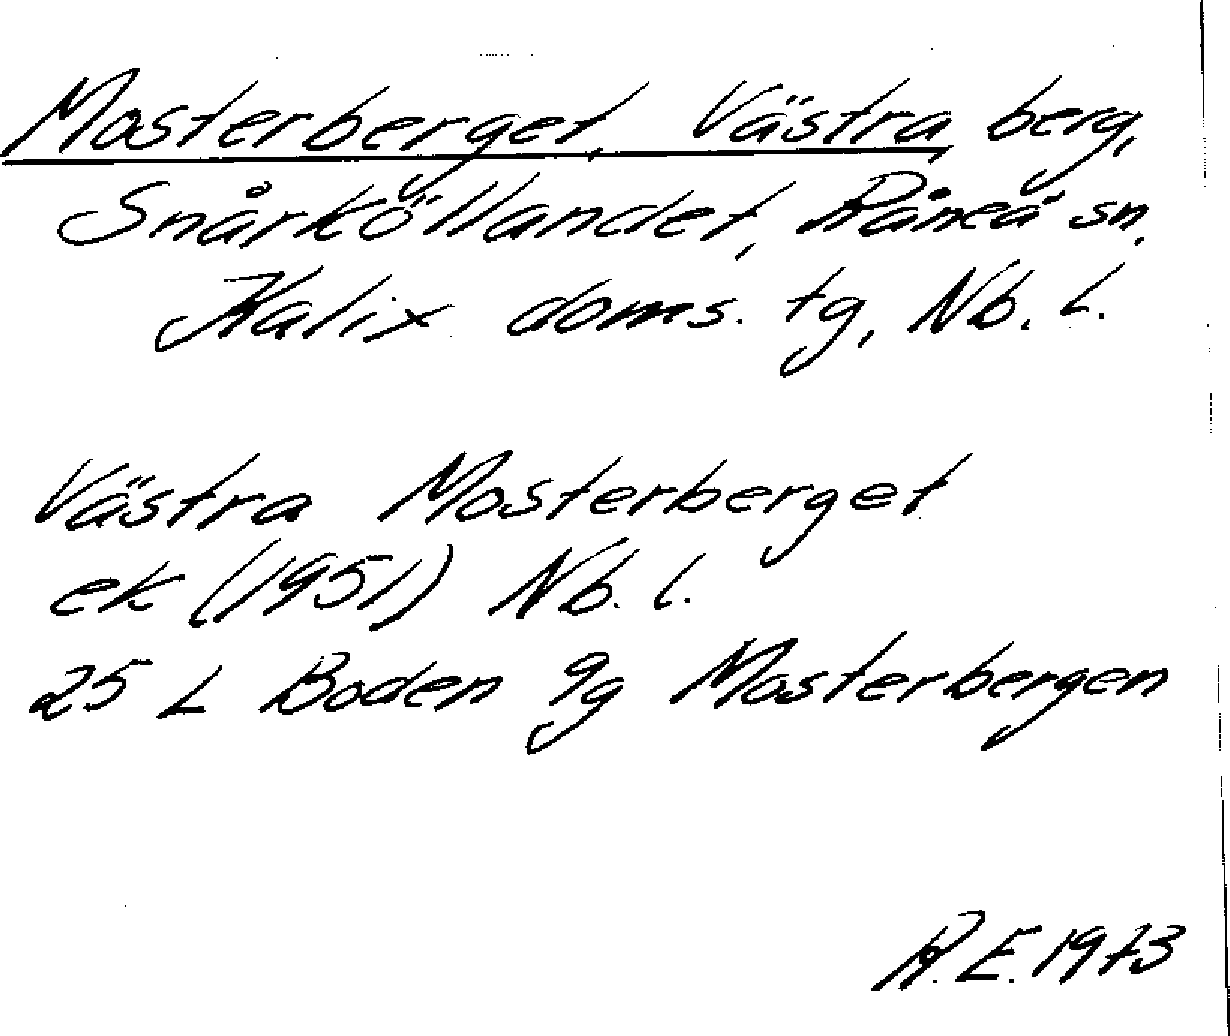 Mosterberget, Västra, berg,
Snårköllandet, Råneå sn,
Kalix doms. tg, Nb. l.
Västra Mosterberget
ek (1951) Nb. l.
25 L Boden 9g Mosterbergen
R. E. 1973